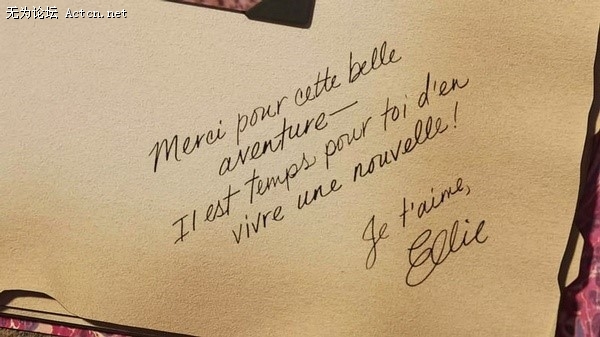 无为论坛 Actcn.net
Merci pour cette belle
aventure—
Il est temps pour toi d'en
vivre une nouvelle!
Je t'aime,
Ellie